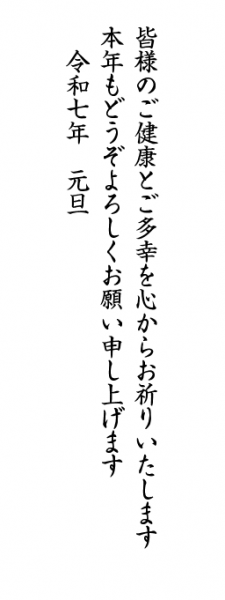 皆様のご健康とご多幸を心からお祈りいたします
本年もどうぞよろしくお願い申し上げます
令和七年　元旦